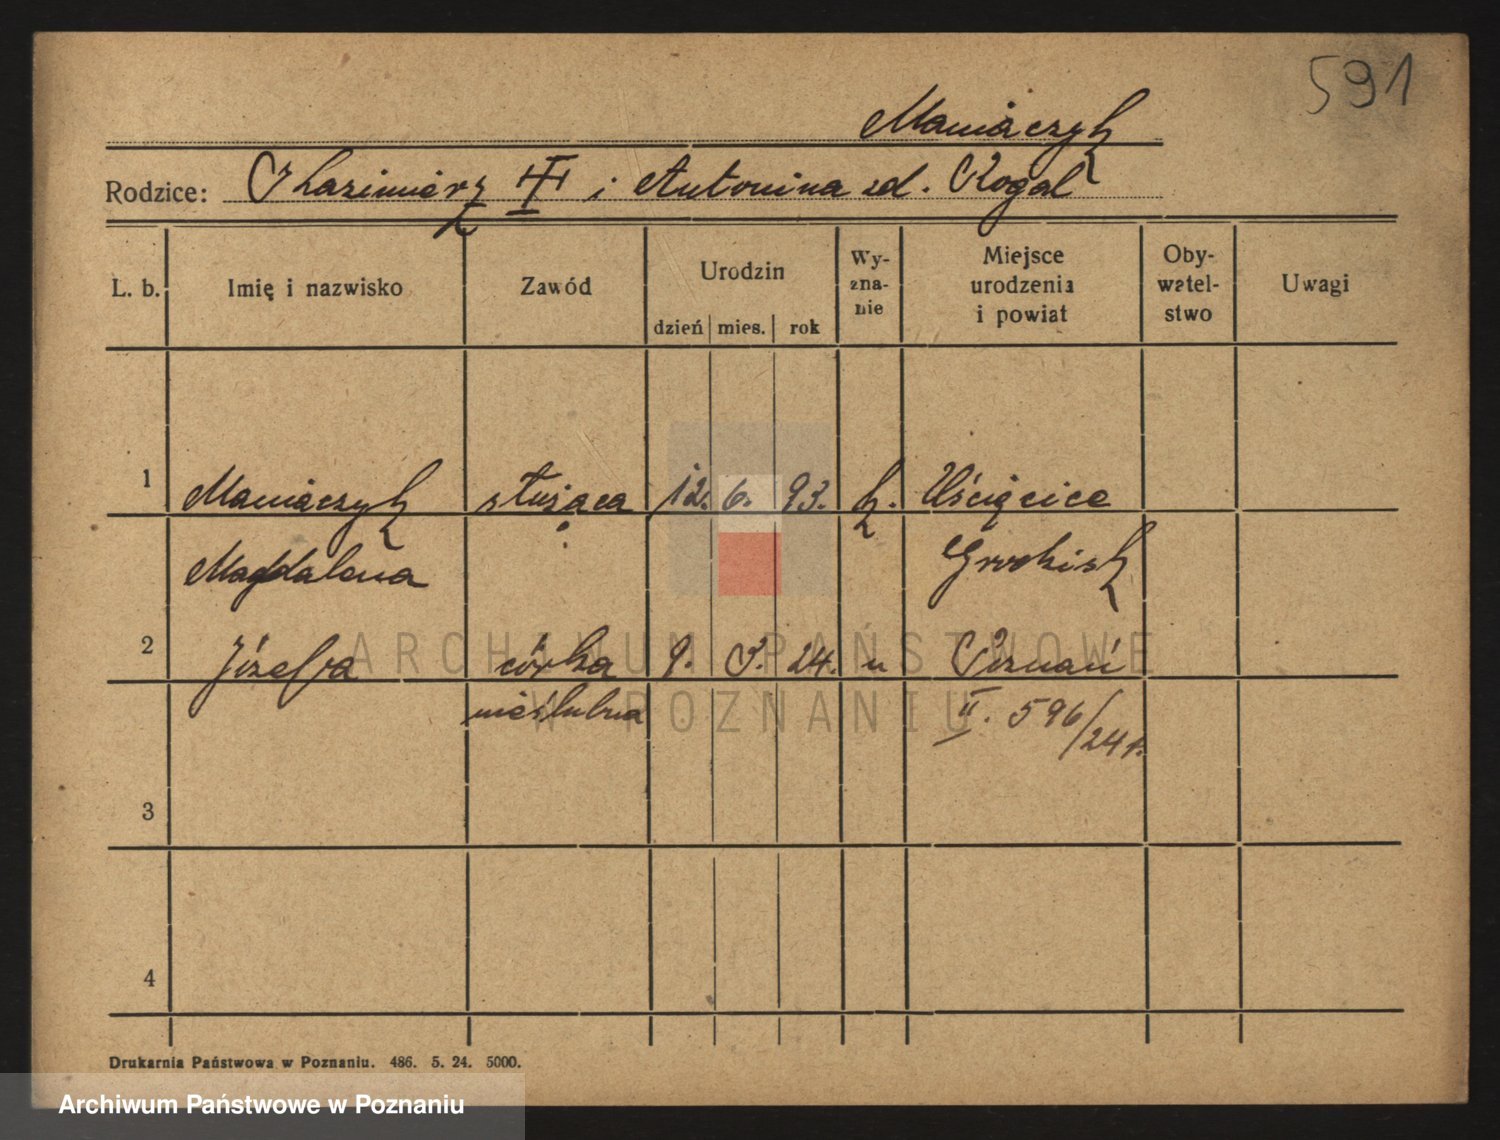 591
Maniaczyk
Rodzice: Kazimierz i Antonina zd. Rogal
L. b. Imię i nazwisko Zawód Urodzin dzień mies. rok Wy-zna-nie Miejsce urodzenia i powiat Oby-watel-stwo Uwagi
1 Maniaczyk służąca 12. 6. 93. k. Uścięcice
Magdalena Grodzisk
2 Józefa córka 9. 3. 24. u Poznań
nieślubna II. 596/24 r.
3
4
Drukarnia Państwowa w Poznaniu. 486. 5. 24. 5000.
ARCHIWUM PAŃSTWOWE
W POZNANIU
Archiwum Państwowe w Poznaniu